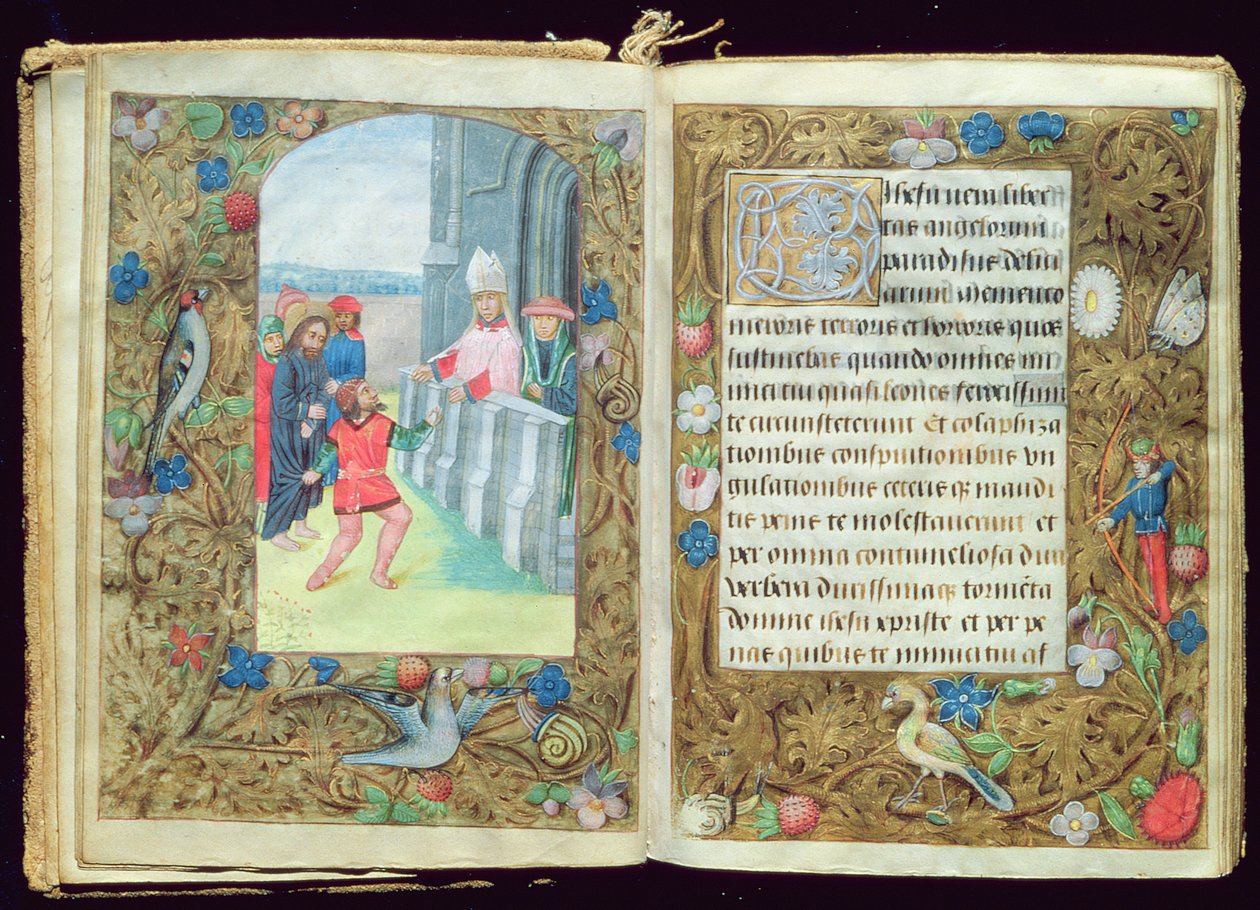 O Ihesu vera liber
tas angelorum
paradisus delici
arum Memento
meroris terroris et horroris quos
sustinebas quando omnes ini
mici tui quasi leones ferocissimi
te circumsteterunt Et colaphiza
tionibus conspuitionibus vn
gulationibus ceteris q3 inaudi
tis penis te molestauerunt et
per omnia contumeliosa dura
verbera durissimaq3 tormēta
domine ihesu xpriste et per pe
nas quibus te inimici tui af